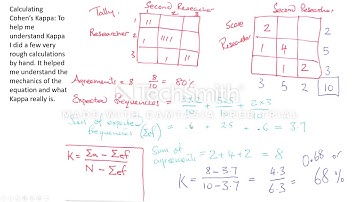 Calculating
Cohen's Kappa: To
help me
understand Kappa
I did a few very
rough calculations
by hand. It helped
me understand the
mechanics of the
equation and what
Kappa really is.
Tally. Second Researcher
1 2 3
Researcher
Second Researcher
Score
Researcher
2 2
1 4 5
1 2 3
3 5 2 10
Agreements = 8 8/10 = 80%
Expected frequencies =
Sum of expected
frequencies (Σef) = .6 + 2.5 + .6 = 3.7
Sum of
agreements = 2+4+2 = 8
K = Σa - Σef / N - Σef
K = 8-3.7 / 10-3.7 = 4.3 / 6.3 = 0.68 or
68%